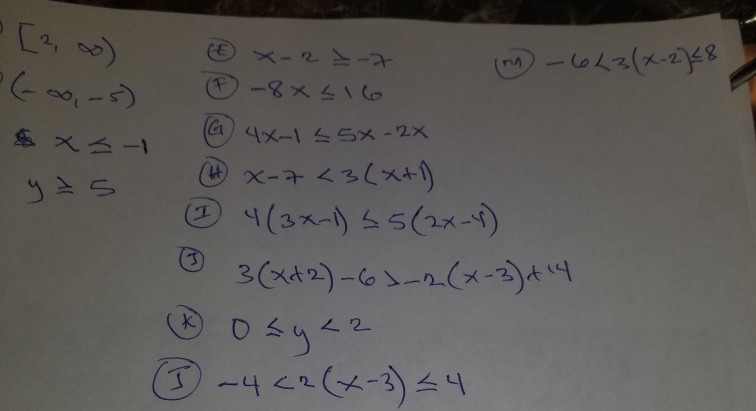 [2, ∞)
(-∞, -5)
x ≤ -1
y ≥ 5
E x - 2 ≥ -7
F -8x ≤ 16
G 4x-1 ≤ 5x-2x
H x-7 < 3(x+1)
I 4(3x-1) ≤ 5(2x-4)
J 3(x+2)-6 > -2(x-3)+14
K 0 ≤ y < 2
J -4 < 2(x-3) ≤ 4
M -6 < 3(x-2) ≤ 8